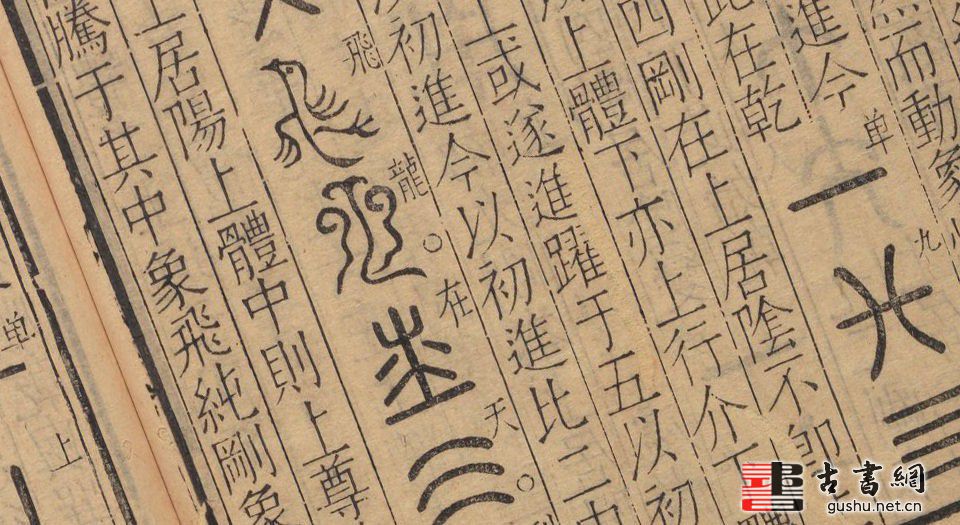 而動象
進今
此在乾
单
九
四剛在上居陰不即
上體下亦上行介
上或遂進躍于五以初
初進今以初進比二中
飛
龍
在
天
上居陽上體中則上尊
騰于其中象飛純剛象
单
上
古書網
gushu.net.cn